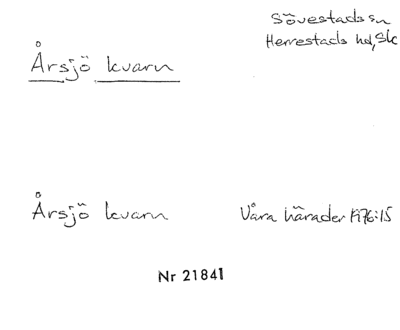 Sövestads sn
Herrestads hd, Sk
Årsjö kvarn
Årsjö kvarn
Våra härader 1976:15
Nr 21841